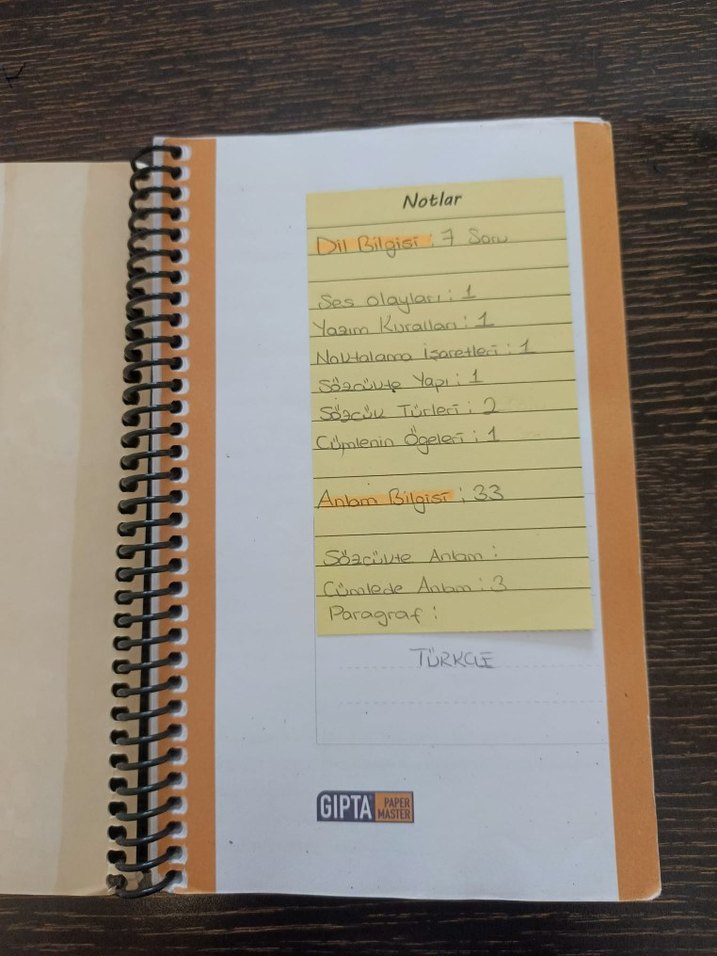 Notlar
Dil Bilgisi : 7 Soru
Ses olayları : 1
Yazım Kuralları : 1
Noktalama İşaretleri : 1
Sözcükte Yapı : 1
Sözcük Türleri : 2
Cümlenin Ögeleri : 1
Anlam Bilgisi : 33
Sözcükte Anlam :
Cümlede Anlam : 3
Paragraf :
TÜRKÇE
GIPTA PAPER MASTER